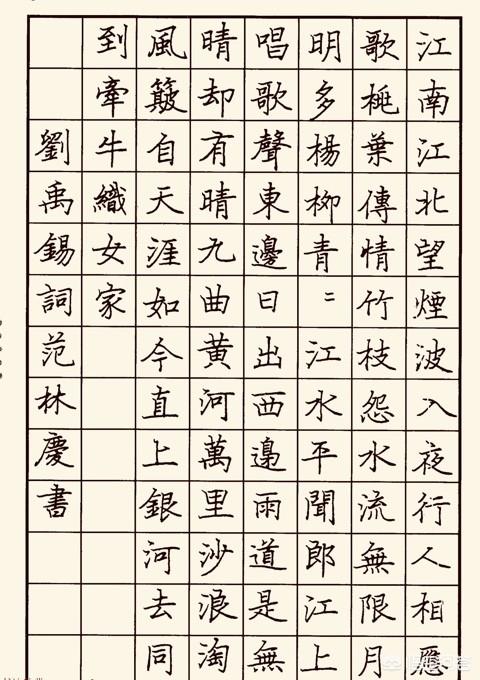 江南江北望煙波入夜行人相應
歌桃葉傳情竹枝怨水流無限月
明多楊柳青〻江水平聞郎江上
唱歌聲東邊日出西邊雨道是無
晴却有晴九曲黃河萬里沙浪淘
風簸自天涯如今直上銀河去同
到牽牛織女家
劉禹錫詞范林慶書